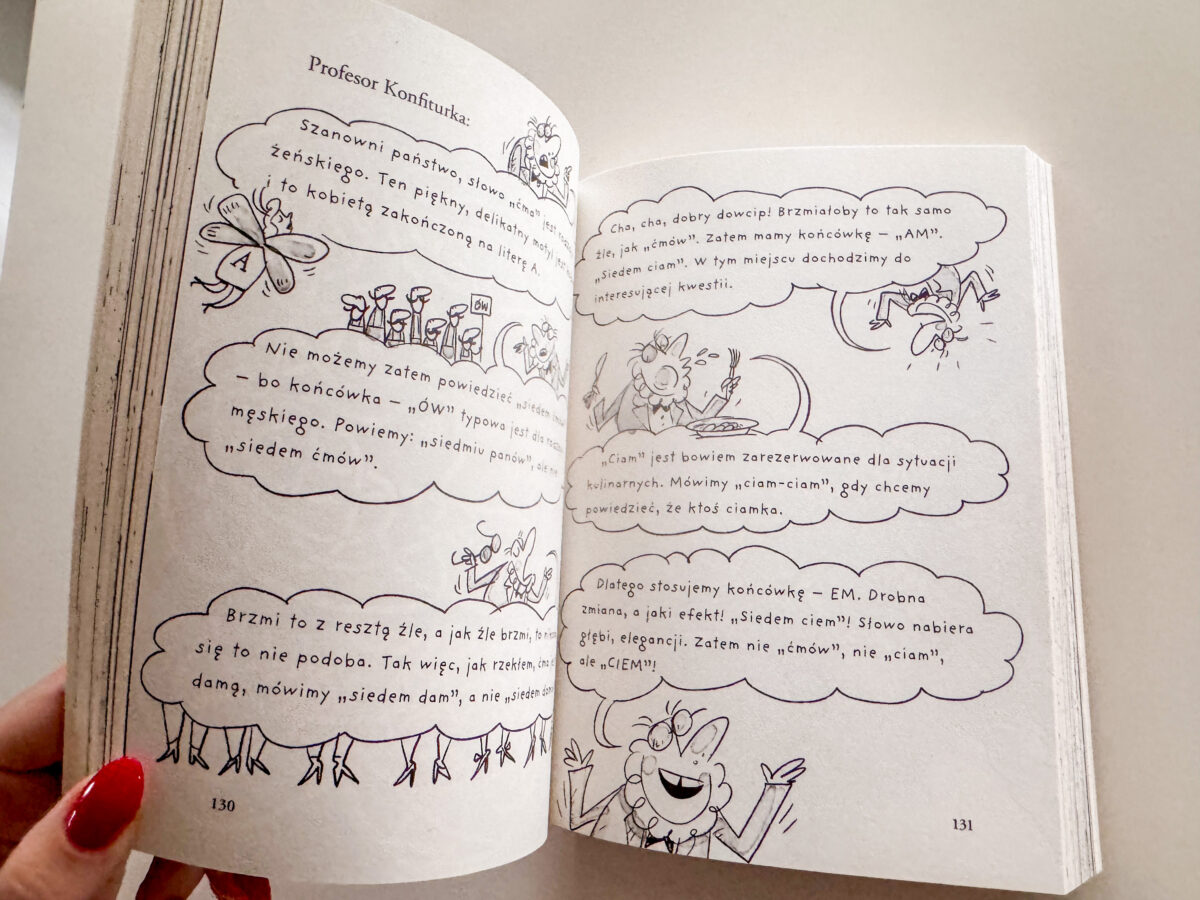 Profesor Konfiturka:
Szanowni państwo, słowo „ćma” jest
żeńskiego. Ten piękny, delikatny motyl jest
i to kobietą zakończoną na literę A.
A
ÓW
Nie możemy zatem powiedzieć „siedem
– bo końcówka – „ÓW” typowa jest dla
męskiego. Powiemy: „siedmiu panów”, ale nie
„siedem ćmów”.
Brzmi to z resztą źle, a jak źle brzmi, to
się to nie podoba. Tak więc, jak rzekłem, ćma
damą, mówimy „siedem dam”, a nie „siedem
130
Cha, cha, dobry dowcip! Brzmiałoby to tak samo
źle, jak „ćmów”. Zatem mamy końcówkę – „AM”.
„Siedem ciam”. W tym miejscu dochodzimy do
interesującej kwestii.
„Ciam” jest bowiem zarezerwowane dla sytuacji
kulinarnych. Mówimy „ciam-ciam”, gdy chcemy
powiedzieć, że ktoś ciamka.
Dlatego stosujemy końcówkę – EM. Drobna
zmiana, a jaki efekt! „Siedem ciem”! Słowo nabiera
głębi, elegancji. Zatem nie „ćmów”, nie „ciam”,
ale „CIEM”!
131